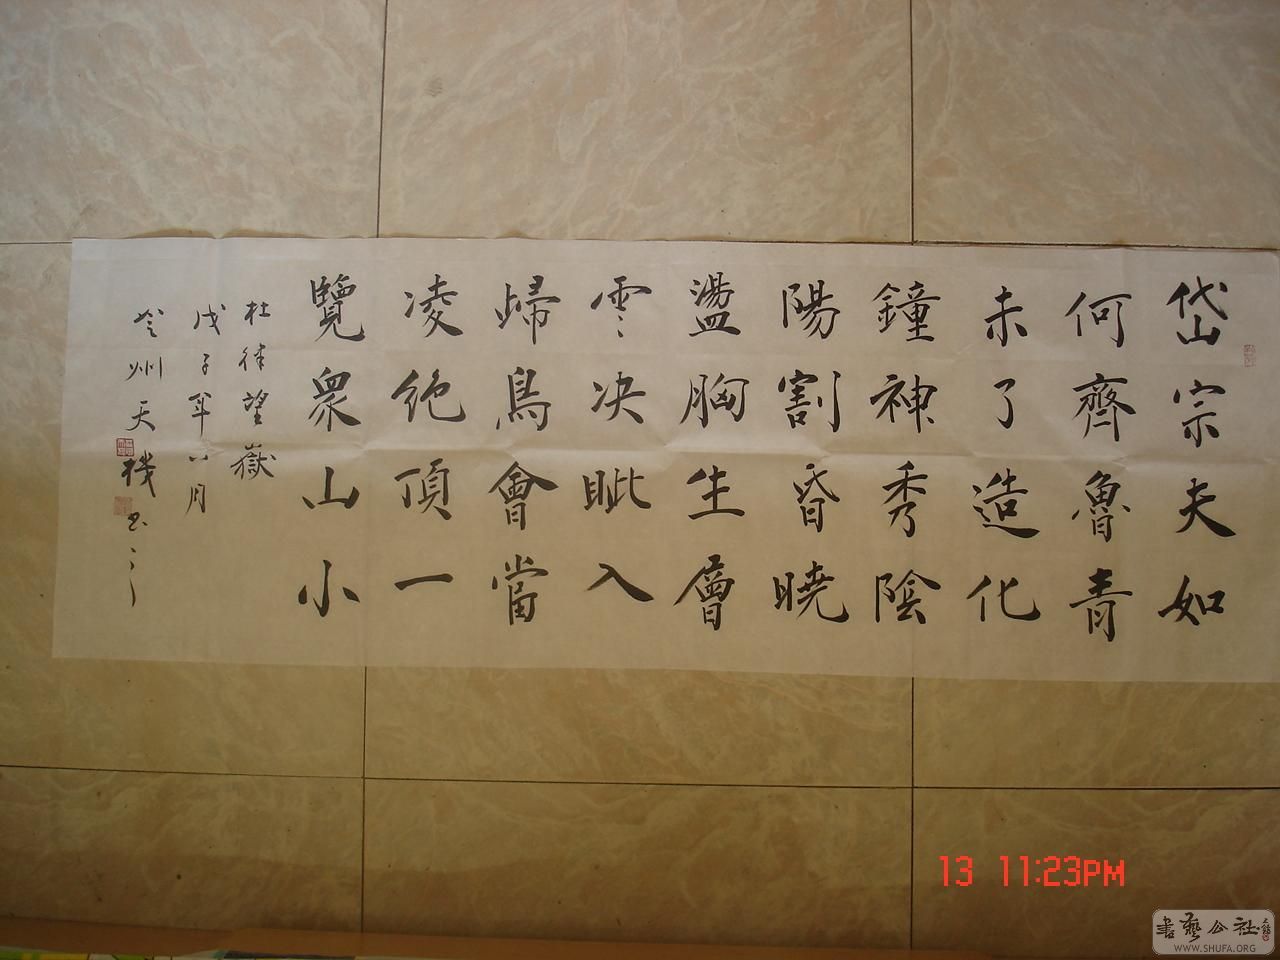 岱宗夫如
何齊魯青
未了造化
鐘神秀陰
陽割昏曉
盪胸生層
雲决眦入
歸鳥會當
凌絶頂一
覽衆山小
杜律望嶽
戊子年八月
州天機书之
13 11:23PM
書藝公社
WWW.SHUFA.ORG